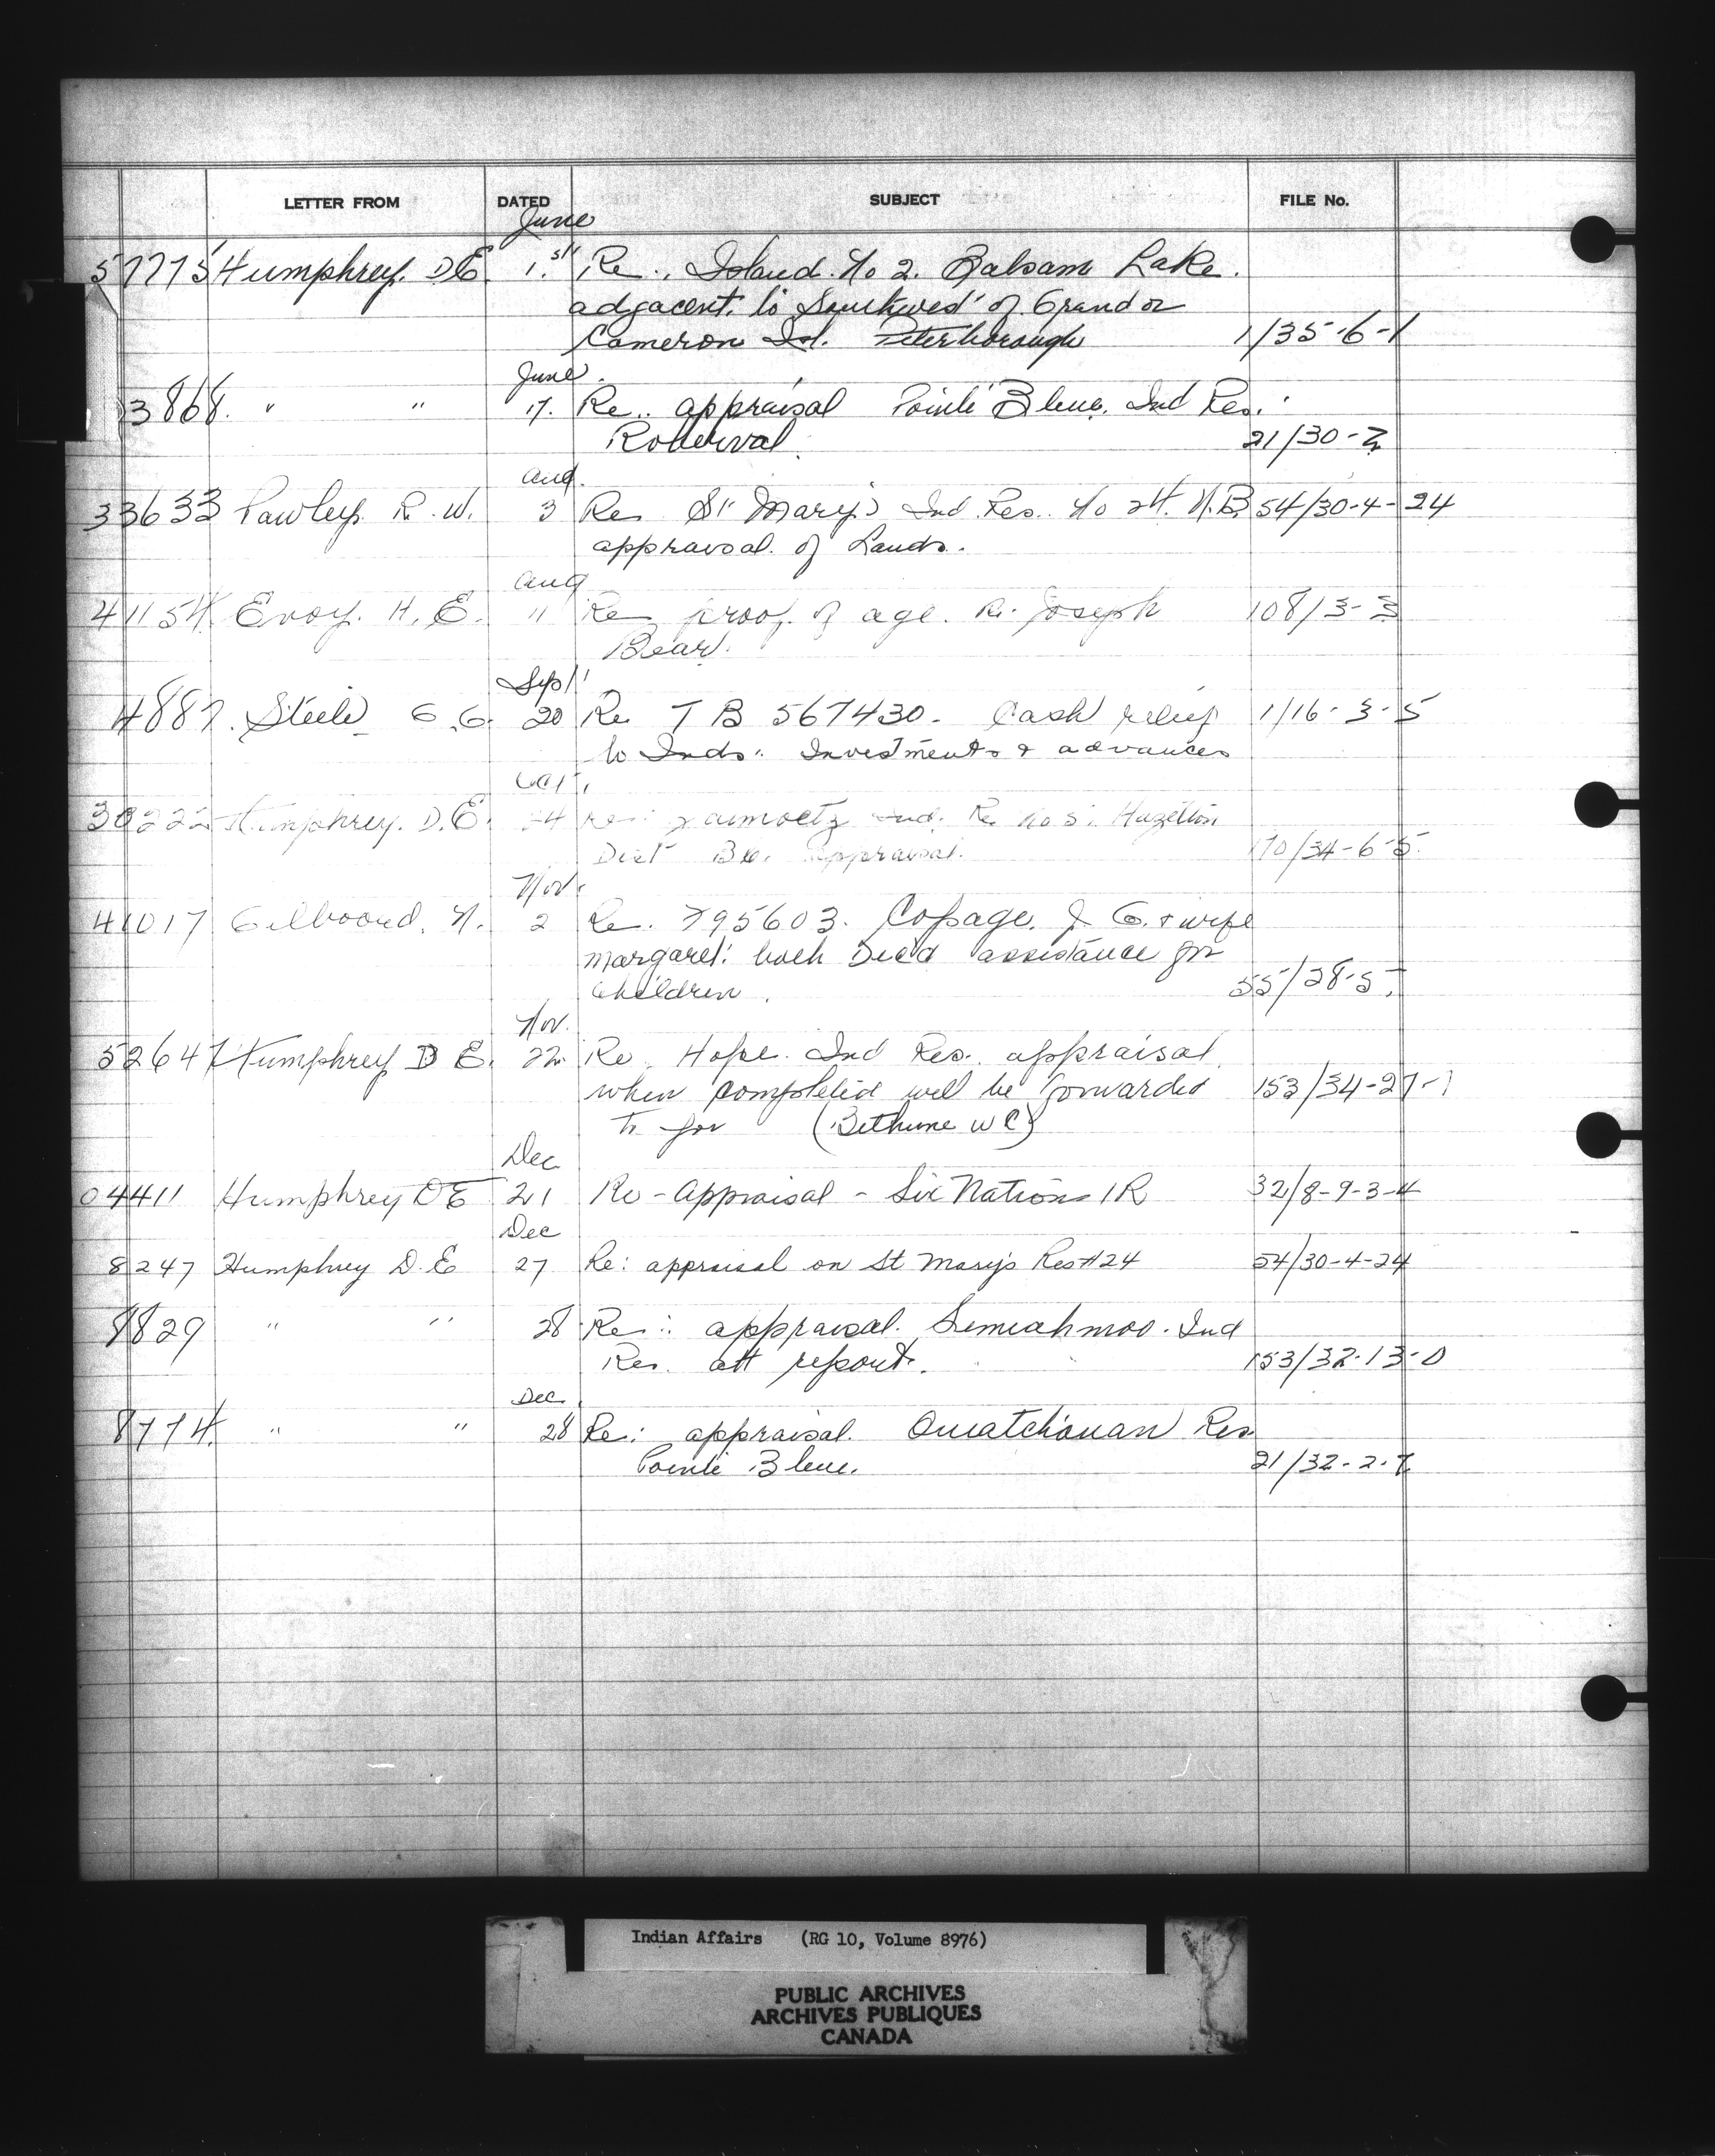 LETTER FROM DATED SUBJECT FILE No.
June
57775 Humphrey. D.E. 1.st Re., Island. No 2. Balsam Lake.
adjacent. to Southwest of Grand or
Cameron Isl. Peterborough 1/35-6-1
June.
3868. " " 17. Re.. appraisal Pointe Bleue. Ind Res.
Roberval. 21/30-7
Aug.
33633 Pawley. R. W. 3 Re St Mary's Ind. Res.. No 24. N.B. 54/30-4-24
appraisal. of Lands.
Aug
41154 Evoy. H. E. 11 Re proof. of age. Re. Joseph 108/3-3
Bear.
Sept
4887. Steele G.G. 20 Re T B 567430. Cash relief 1/16-3-5
to Inds. Investments & advances
Oct.
30222 Humphrey. D.E. 24 re: Ind. Re No 5. Hazelton
Dist B.C. Appraisal. 170/34-6-5.
Nov.
41017 N. 2 Re. 795603. Copage. J G. & wife
Margaret: both Dec'd assistance for
children. 55/28-5.
Nov.
52647 Humphrey D E. 22 Re. Hope. Ind Res. appraisal.
when completed will be forwarded 153/34-27-1
to for (Bethune W C)
Dec
04411 Humphrey D E 21 Re - Appraisal - Six Nations I R 32/8-9-3-4
Dec
8247 Humphrey D. E 27 Re: appraisal on St Mary's Res #24 54/30-4-24
8829 " " 28 Re:: appraisal. Semiahmoo. Ind
Res. att report. 153/32-13-0
Dec.
8774. " " 28 Re: appraisal. Ouiatchouan Res
Pointe Bleue. 21/32-2-7
Indian Affairs (RG 10, Volume 8976)
PUBLIC ARCHIVES
ARCHIVES PUBLIQUES
CANADA